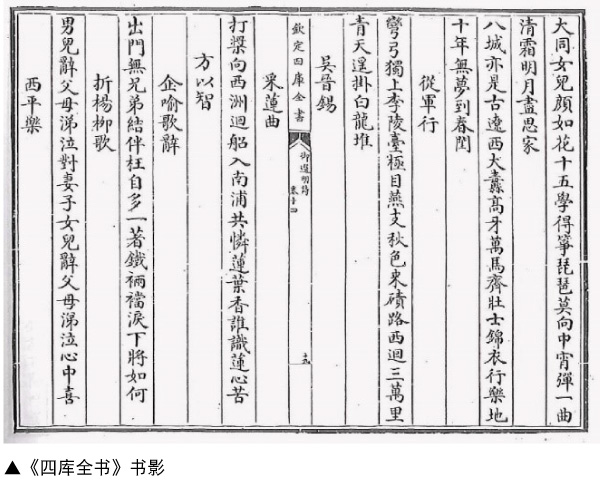 大同女兒顏如花十五學得箏琵琶莫向中宵彈一曲
清霜明月盡思家
八城亦是古遼西大纛髙牙萬馬齊壯士錦衣行樂地
十年無夢到春閨
從軍行
彎弓獨上李陵臺極目燕支秋色來磧路西迴三萬里
青天遥掛白龍堆
吳晉錫
采蓮曲
欽定四庫全書
御選明詩
卷十四
打槳向西洲迴船入南浦共憐蓮葉香誰識蓮心苦
方以智
企喻歌辭
出門無兄弟結伴枉自多一著鐵裲襠淚下將如何
折楊柳歌
男兒辭父母涕泣對妻子女兒辭父母涕泣心中喜
西平樂
▲《四库全书》书影